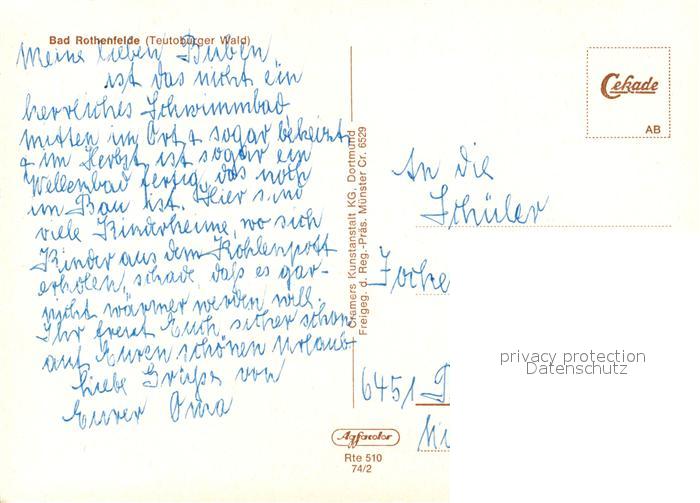 Bad Rothenfelde (Teutoburger Wald)
Meine lieben Buben
ist das nicht ein
herrliches Schwimmbad
mitten im Ort & sogar beheizt
& im Herbst ist sogar ein
Wellenbad fertig, das noch
im Bau ist. Hier sind
viele Kinderheime, wo sich
Kinder aus dem Kohlenpott
erholen, schade, daß es gar-
nicht wärmer werden will.
Ihr freut Euch sicher schon
auf Euren schönen Urlaub
Liebe Grüße von
Eurer Oma
Cramers Kunstanstalt KG, Dortmund
Freigeg. d. Reg.-Präs. Münster Cr. 6529
Cekade
AB
An die
Schüler
6451
privacy protection
Datenschutz
Agfacolor
Rte 510
74/2